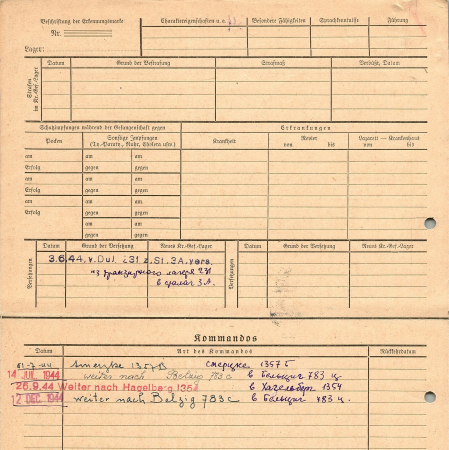 Beschriftung der Erkennungsmarke
Nr.
Lager:
Charaktereigenschaften u.a. Besondere Fähigkeiten Sprachkenntnisse Führung
Strafen im Kr.-Gef.-Lager
Datum Grund der Bestrafung Strafmaß Verbüßt, Datum
Schutzimpfungen während der Gefangenschaft gegen Erkrankungen
Pocken Sonstige Impfungen (Ty.-Paraty., Ruhr, Cholera usw.) Krankheit Revier von bis Lazarett — Krankenhaus von bis
am am am
Erfolg gegen gegen
am am am
Erfolg gegen gegen
am am am
Erfolg gegen gegen
am am
gegen gegen
Versetzungen
Datum Grund der Versetzung Neues Kr.-Gef.-Lager Versetzungen Datum Grund der Versetzung Neues Kr.-Gef.-Lager
3.6.44. v. Dul. 231 z. St. 3A. vers.
из транзитного лагеря 231
в сталаг 3А.
Kommandos
Datum Art des Kommandos Rückkehrdatum
1357 б
14 JUL 1944 weiter nach Belzig 783 c в Бельциг 783 ц.
26.9.44 Weiter nach Hagelberg 1354 в Хагельберг 1354
12 DEC. 1944 weiter nach Belzig 783 c в Бельциг 783 ц.